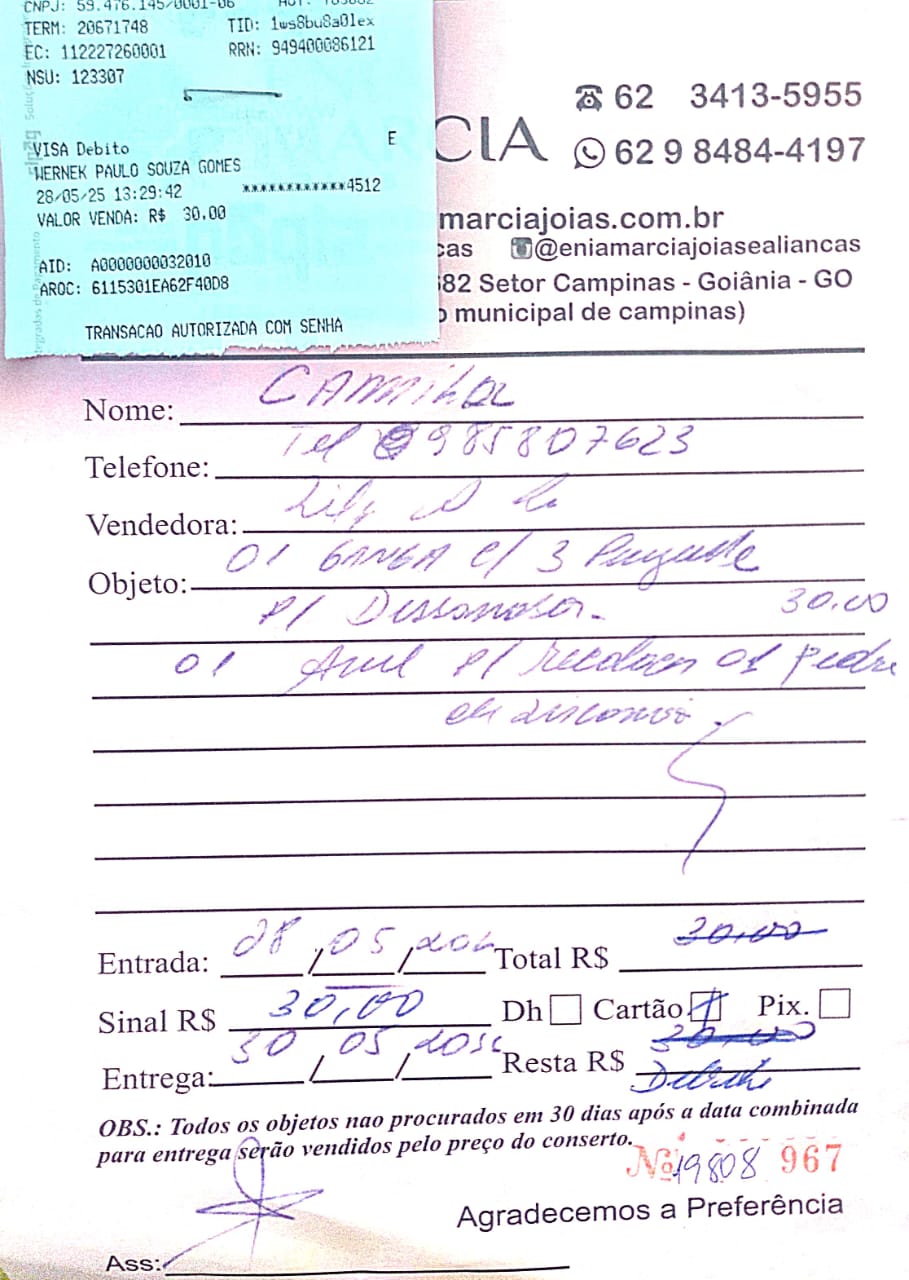 CNPJ: 59.476.145/0001-06
TERM: 20671748 TID: 1ws8bu8a01ex
EC: 112227260001 RRN: 949400086121
NSU: 123307
VISA Debito E
WERNEK PAULO SOUZA GOMES
28/05/25 13:29:42 ************4512
VALOR VENDA: R$ 30.00
AID: A0000000032010
ARQC: 6115301EA62F40D8
TRANSACAO AUTORIZADA COM SENHA
RCIA
62 3413-5955
62 9 8484-4197
marciajoias.com.br
cas @eniamarciajoiasealiancas
682 Setor Campinas - Goiânia - GO
o municipal de campinas)
Nome: CAMILA
Telefone: Tel 985807623
Vendedora:
Objeto: 01 GANGA C/ 3
P/ 30.00
01 P/ 01 pedra
Entrada: 28/05/202 Total R$ 30,00
Sinal R$ 30,00 Dh Cartão Pix.
Entrega: 30/05/202 Resta R$ 30,00
OBS.: Todos os objetos nao procurados em 30 dias após a data combinada
para entrega serão vendidos pelo preço do conserto.
Nº 19808 967
Agradecemos a Preferência
Ass: